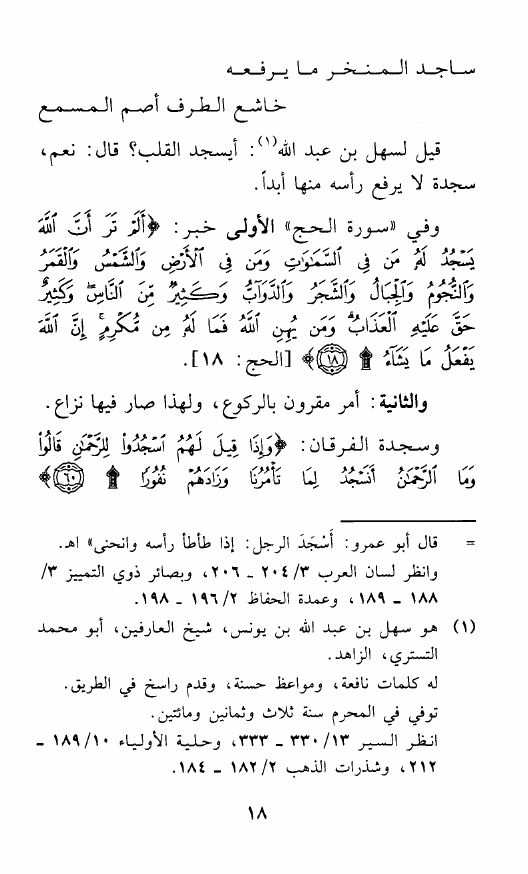 ساجد المنخر ما يرفعه
خاشع الطرف أصم المسمع
قيل لسهل بن عبد الله(١): أيسجد القلب؟ قال: نعم،
سجدة لا يرفع رأسه منها أبداً.
وفي «سورة الحج» الأولى خبر: ﴿أَلَمْ تَرَ أَنَّ ٱللَّهَ
يَسْجُدُ لَهُۥ مَن فِى ٱلسَّمَٰوَٰتِ وَمَن فِى ٱلْأَرْضِ وَٱلشَّمْسُ وَٱلْقَمَرُ
وَٱلنُّجُومُ وَٱلْجِبَالُ وَٱلشَّجَرُ وَٱلدَّوَآبُّ وَكَثِيرٌ مِّنَ ٱلنَّاسِ ۖ وَكَثِيرٌ
حَقَّ عَلَيْهِ ٱلْعَذَابُ ۗ وَمَن يُهِنِ ٱللَّهُ فَمَا لَهُۥ مِن مُّكْرِمٍ ۚ إِنَّ ٱللَّهَ
يَفْعَلُ مَا يَشَآءُ ۩ ١٨﴾ [الحج: ١٨].
والثانية: أمر مقرون بالركوع، ولهذا صار فيها نزاع.
وسجدة الفرقان: ﴿وَإِذَا قِيلَ لَهُمُ ٱسْجُدُوا۟ لِلرَّحْمَٰنِ قَالُوا۟
وَمَا ٱلرَّحْمَٰنُ أَنَسْجُدُ لِمَا تَأْمُرُنَا وَزَادَهُمْ نُفُورًا ۩ ٦٠﴾
= قال أبو عمرو: أَسْجَدَ الرجل: إذا طأطأ رأسه وانحنى» اهـ.
وانظر لسان العرب ٢٠٤/٣ - ٢٠٦، وبصائر ذوي التمييز ٣/
١٨٨ - ١٨٩، وعمدة الحفاظ ١٩٦/٢ - ١٩٨.
(١) هو سهل بن عبد الله بن يونس، شيخ العارفين، أبو محمد
التستري، الزاهد.
له كلمات نافعة، ومواعظ حسنة، وقدم راسخ في الطريق.
توفي في المحرم سنة ثلاث وثمانين ومائتين.
انظر السير ٣٣٠/١٣ - ٣٣٣، وحلية الأولياء ١٨٩/١٠ -
٢١٢، وشذرات الذهب ١٨٢/٢ - ١٨٤.
١٨